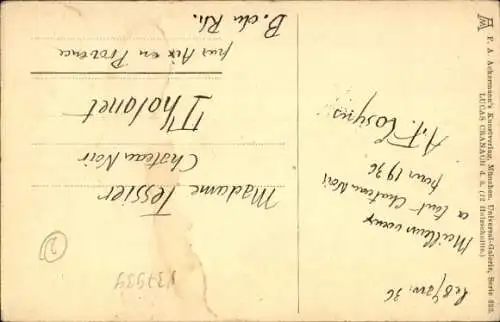 Le 8 Janv. 36
Meilleurs voeux
a tout Chateau Noir
pour 1936
A.F. Cosyns
Madame Tessier
Chateau Noir
Tholonet
par Aix en Provence
B. du Rh.
F. A. Ackermann's Kunstverlag, München. Universal-Galerie, Serie
LUCAS CRANACH d. ä. (12 Holzschnitte.)
2